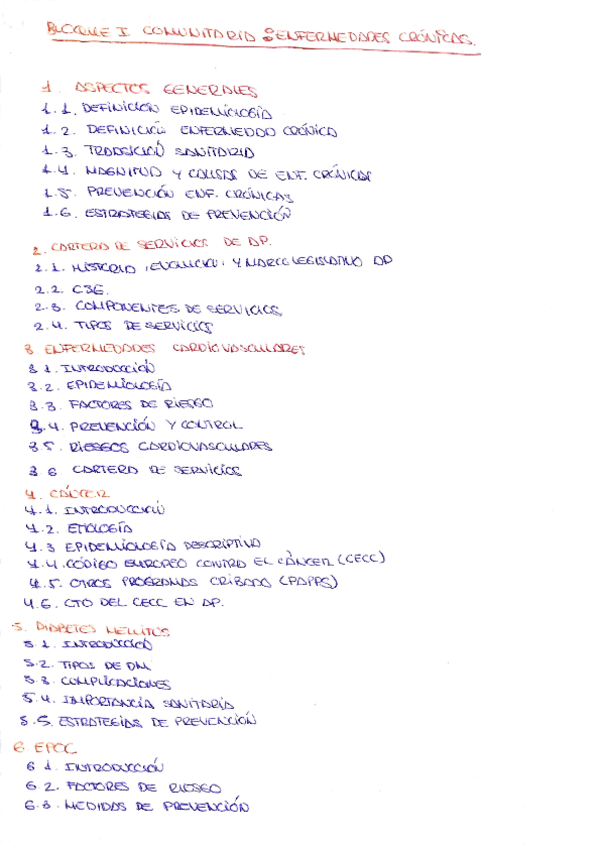 BLOQUE I COMUNITARIA: ENFERMEDADES CRÓNICAS.
1. ASPECTOS GENERALES
1.1. DEFINICIÓN EPIDEMIOLOGÍA
1.2. DEFINICIÓN ENFERMEDAD CRÓNICA
1.3. TRANSICIÓN SANITARIA
1.4. MAGNITUD Y CAUSAS DE ENF. CRÓNICAS
1.5. PREVENCIÓN ENF. CRÓNICAS
1.6. ESTRATEGIAS DE PREVENCIÓN
2. CARTERA DE SERVICIOS DE AP.
2.1. HISTORIA, EVOLUCIÓN Y MARCO LEGISLATIVO AP
2.2. CSE.
2.3. COMPONENTES DE SERVICIOS
2.4. TIPOS DE SERVICIOS
3 ENFERMEDADES CARDIOVASCULARES
3.1. INTRODUCCIÓN
3.2. EPIDEMIOLOGÍA
3.3. FACTORES DE RIESGO
3.4. PREVENCIÓN Y CONTROL
3.5. RIESGOS CARDIOVASCULARES
3.6 CARTERA DE SERVICIOS
4. CÁNCER
4.1. INTRODUCCIÓN
4.2. ETIOLOGÍA
4.3 EPIDEMIOLOGÍA DESCRIPTIVA
4.4. CÓDIGO EUROPEO CONTRA EL CÁNCER (CECC)
4.5. OTROS PROGRAMAS CRIBADO (PAPPS)
4.6. CTO DEL CECC EN AP.
5. DIABETES MELLITUS
5.1. INTRODUCCIÓN
5.2. TIPOS DE DM
5.3. COMPLICACIONES
5.4. IMPORTANCIA SANITARIA
5.5. ESTRATEGIAS DE PREVENCIÓN
6 EPOC
6.1. INTRODUCCIÓN
6.2. FACTORES DE RIESGO
6.3. MEDIDAS DE PREVENCIÓN